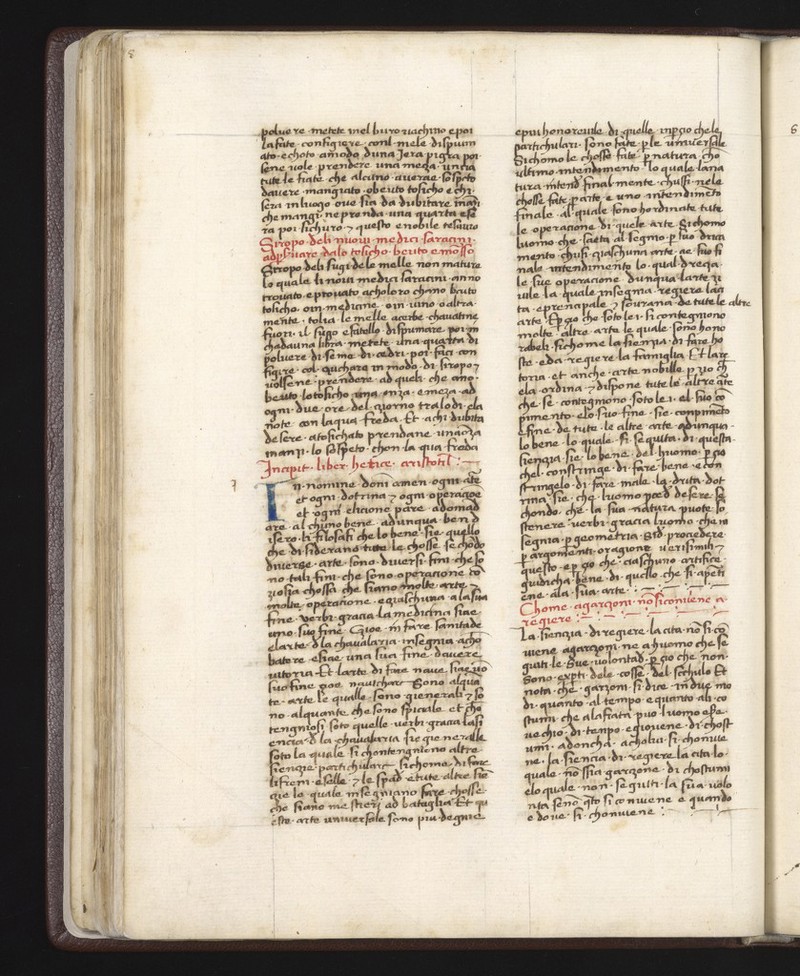 polvere · metete inel buro vachino e poi
lafate · configiere · con l mele dispum
ato · e choto amodo duna Jera pigra poi
sene vole prendere una meza · uncia
tute le fiate che alcuno averae · sospeto
davere · mangiato · obeuto tosicho e chi
sera inluogo ove sia da dubitare inãzi
che mangi · ne prenda · una quarta e se
ra poi sichuro · ⁊ questo e nobile tesauro
Siropo · deli nuovi medici saracini ·
Siropo deli sugi dele melle non mature
lo quale li novi medici saracini · anno
trovato e provato acholoro chãno beuto
tosicho · o in medicine · o in vino o altra ·
mẽte · tolia le melle acerbe chavatine
fuori · il sugo e fatello dispumare poi in
chadauna libra metete una quarta di
polvere di seme di cedri poi faci con
figire · col quchare in modo di siropo ⁊
vollsene prendere · ad queli che ano ·
beuto lo tosicho una onza · e meza · ad
ogni · due ore del zorno tralodi · ela
note con laqua freda · Et achi dubita
desere atosichato prendane unaõza
inanzi · lo sospeto chon la qua freda
Incipit · liber hetice aristotil :
In nomine domĩ amen ogni ãte
et ogni dotrina ⁊ ogni operacioe
et ogni elicione pare adomãd
are · al chuno bene adunqua · ben d
isero · li filosafi che lo bene sie quello
che di siderano tute le chosse sechõdo
diverse · arte · sono diversi fini che so
no tali fini che sono operacione cõ
molte operacione · e quaschuna ala sua
fine verbi gracia la medicina siae
uno · suo fine Czioe in fare sanitade
e larte dla chavalaria insegnia acho
batere e siae una sua fine davere
vitoria Et larte di fare nave siae uõ
suo fine zoe navichare Sono alqua
te · arte le qualle sono gienerali ⁊ so
no alquante che sono speciale et chõ
tengniosi soto quelle verbi gracia lasi
encia dla chavalaria sie generalle
soto la quale si chontengniono altre
sienzie particulare sichome di fare
li freni e selle · ⁊ le spad e tute altre siẽ
cie le quale insegniano fare chosse
che siano mestieri ad bataglia Et qu
este arte universale sono piu degnie
epiu honorevile di quelle inperzio chele
partichulari sono fate ple universale
Sichomo le chosse fate p natura cho
ultimo intendimento lo quale lana
tura intend final mente chussi nele
chosse fate p arte e uno intendimẽto
finale · al quale sono hordinate tute
le operacione di quele arte Sichomo
luomo che saeta al segnio p suo driza
mento chusi ziaschuna arte ae suo fi
nale intendimento lo qual dreza ·
le sue operacione dunqua larte zi
vile la quale insegnia regiere laci
ta e prenzipale ⁊ sovrana de tute le altre
arte · Epzio che soto lei · si contegniono
molte altre arte le quale sono hono
rabeli · sichome la sienza di fare ho
ste · e da regiere la famiglia Et lare
toria et anche arte nobille p zio ch
ela ordina ⁊ dispone tute le altre arte
che se contegniono soto lei · el suo cõ
pimento · elo suo fine sie conpimẽto
e fine de tute le altre arte adunqua ·
lo bene lo quale si seguita di questa ·
sienzia sie lo bene del huomo p zio
chel constringe di fare bene e con
stringelo di fare male la drita dot
rina sie che luomo pced desere se
chondo che la sua natura puote so
stenere verbi gracia luomo che in
segnia p geometria sid procedere
p argomenti · o ragione verisimili ⁊
questo e p zio che ciaschuno artifice
giudicha bene di quello che si aperti
ene ala sua arte :
Chome agarzoni nõ si conviene a ·
regiere :
La sienzia · di regiere la cita nõ si cõ
viene agarzoni ne a huomo che se
guiti le sue volontad p zio che non ·
sono experti dele cosse del secholo Et
nota che garzoni si dice in due mo
di quanto al tempo e quanto ali co
stumi che ala fiata puo luomo ese
vechio di tempo e giovene di chost
umi adoncha acholui si chonvie
ne la sienzia di regiere la cita lo ·
quale nõ ssia garzone di chostumi
elo quale non seguiti la sua volo
nta seno qto si conviene e quando
e dove si chonviene :